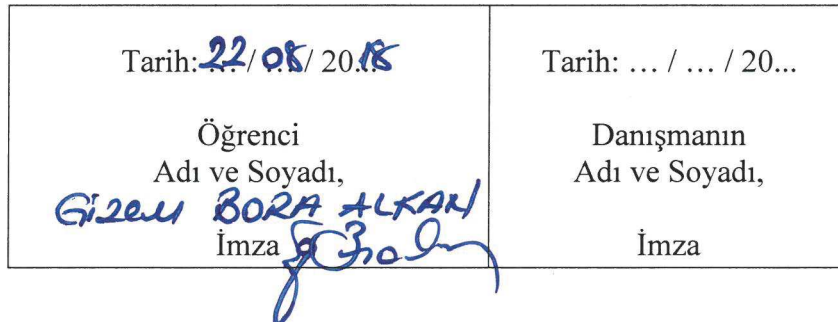 Tarih: 22 / 08 / 2018
Öğrenci
Adı ve Soyadı,
Gizem BORA ALKAN
İmza
Tarih: ... / ... / 20...
Danışmanın
Adı ve Soyadı,
İmza